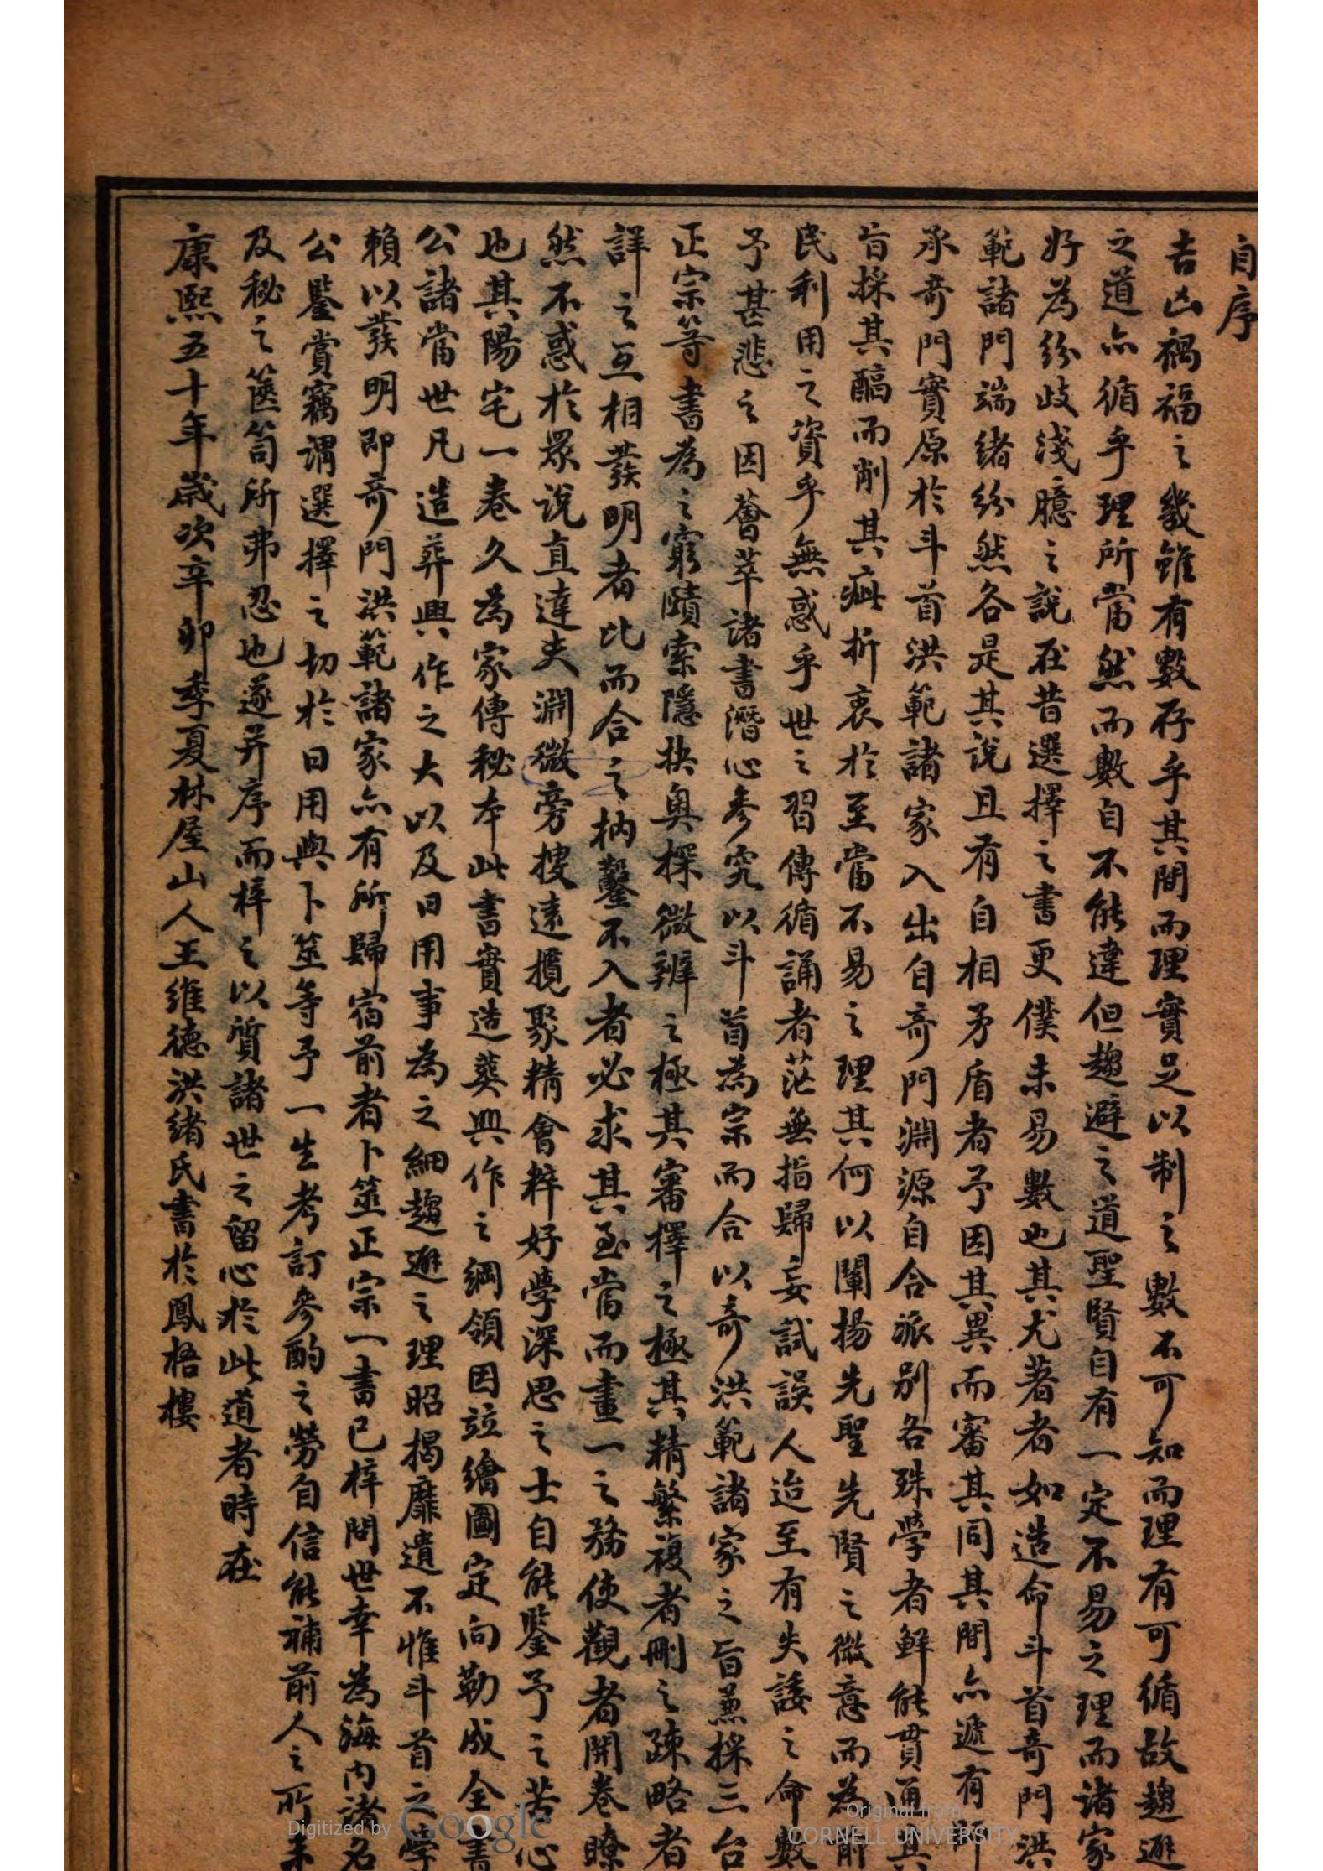 自序
吉凶禍福之幾雖有數存乎其間而理實足以制之數不可知而理有可循故趨避
之道亦循乎理所當然而數自不能違但趨避之道聖賢自有一定不易之理而諸家
好為紛歧淺臆之說在昔選擇之書更僕未易數也其尤著者如造命斗首奇門洪
範諸門端緒紛然各是其說且有自相矛盾者予因其異而審其同其間亦遞有師
承奇門實原於斗首洪範諸家入出自奇門淵源自合派別各殊學者鮮能貫通其
旨採其醇而削其疵折衷於至當不易之理其何以闡揚先聖先賢之微意而為前
民利用之資乎無惑乎世之習傳循誦者茫無指歸妄試誤人迨至有失諉之命數
予甚悲之因薈萃諸書潛心參究以斗首為宗而合以奇洪範諸家之旨兼採三台
正宗等書為之窮賾索隱抉奧探微辨之極其審擇之極其精繁複者刪之疎略者
詳之互相發明者比而合之枘鑿不入者必求其至當而畫一之務使觀者開卷瞭
然不惑於眾說直達夫淵微旁搜遠攬聚精會粹好學深思之士自能鑒予之苦心
也其陽宅一卷久為家傳秘本此書實造葬興作之綱領因竝繪圖定向勒成全書
公諸當世凡造葬興作之大以及日用事為之細趨避之理昭揭靡遺不惟斗首之學
賴以發明即奇門洪範諸家亦有所歸宿前者卜筮正宗一書已梓問世幸為海內諸名
公鑒賞竊謂選擇之切於日用與卜筮等予一生考訂參酌之勞自信能補前人之所未
及秘之篋笥所弗忍也遂并序而梓之以質諸世之留心於此道者時在
康熙五十年歲次辛卯季夏林屋山人王維德洪緒氏書於鳳梧樓
Digitized by Google
Original from
CORNELL UNIVERSITY